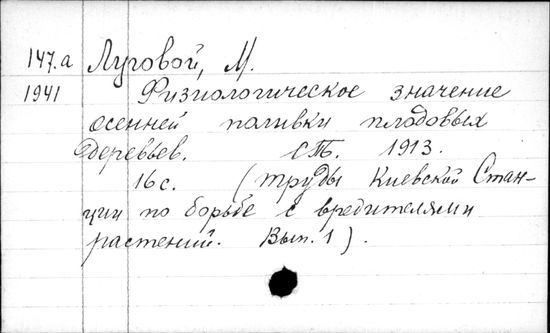 147.а Луговой, М.
1941 Физиологическое значение
осенней поливки плодовых
деревьев. СПб. 1913.
16 с. (труды Киевской Стан-
ции по борьбе с вредителями
растений. Вып. 1).